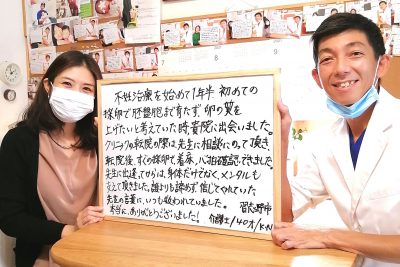 7
8
9
不妊治療を始めて1年半 初めての
採卵で胚盤胞まで育たず 卵の質を
上げたいと考えていた時 貴院に出会いました。
クリニックの転院の際は先生に相談にのって頂き、
転院後、すぐの移植で着床、心拍確認できました。
先生に出逢ってからは、身体だけでなく、メンタルも
支えて頂きました。誰よりも諦めず 信じてくれていた
先生の言葉に、いつも救われていました。
本当に、ありがとうございました!
習志野市
介護士/40才/K・N